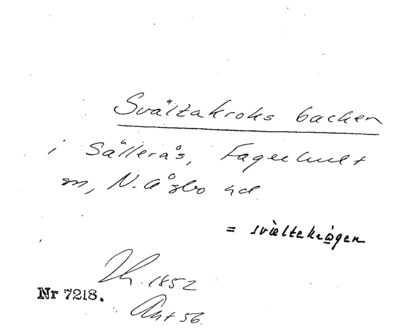 Svältakroks backen
i Sälleräs, Fagerhult
sn, N. Åsbo hd
= svältekrogen
Th. 1852
Nr 7218.
Ant 56.